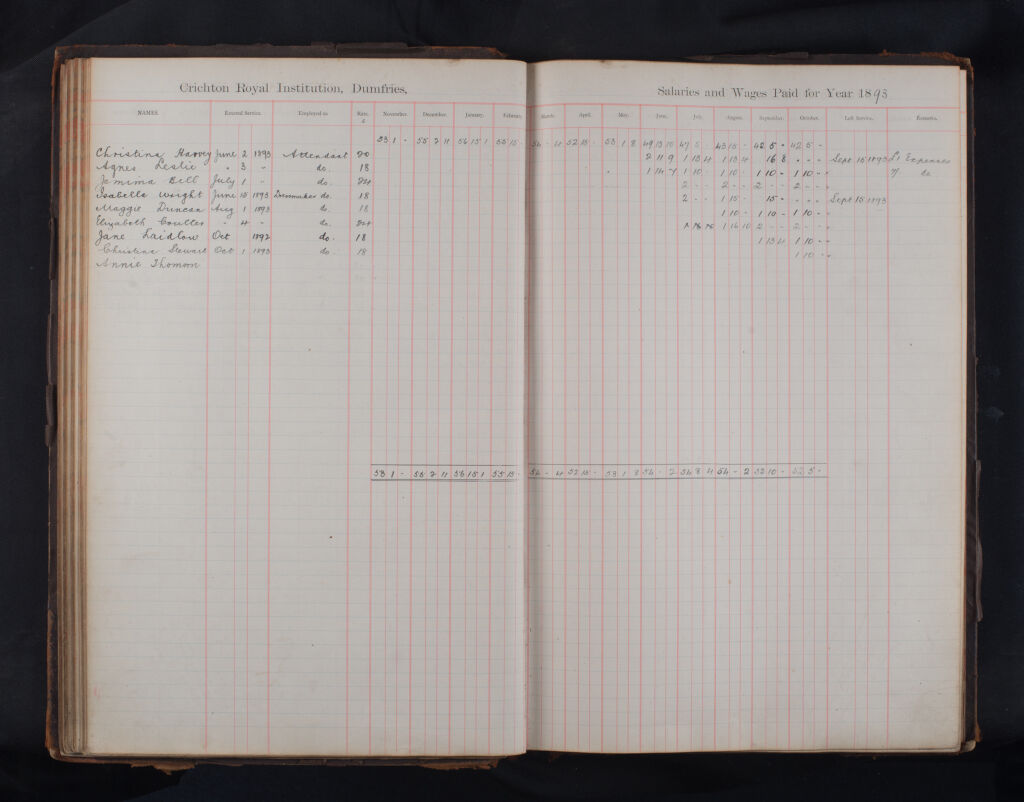 Crichton Royal Institution, Dumfries, Salaries and Wages Paid for Year 1893
NAMES. Entered Service. Employed as Rate. £ November. December. January. February. March. April. May. June. July. August. September. October. Left Service. Remarks.
53 1 - 55 2 11 56 15 1 55 15 - 54 - 4 52 15 - 53 1 8 49 13 10 47 5 - 43 15 - 42 5 - 42 5 -
Christina Harvey June 2 1893 Attendant 20 2 11 9 1 13 4 1 13 4 16 8 - - - Sept 15 1893 £1 Expenses
Agnes Leslie " 3 - do. 18 1 14 7 1 10 - 1 10 - 1 10 - 1 10 - do
Jemima Bell July 1 - do. 2 - - 2 - - 2 - - 2 - -
Isabella Wright June 15 1893 Dressmaker do. 18 2 - - 1 15 - 15 - - - - Sept 15 1893
Maggie Duncan Aug 1 1893 do. 18 1 10 - 1 10 - 1 10 -
Elizabeth Coulter " 4 - do. 1 16 10 2 - - 2 - -
Jane Laidlow Oct 1892 do. 18 1 13 4 1 10 -
Christina Stewart Oct 1 1893 do. 18 1 10 -
Annie Thomson
53 1 - 55 2 11 56 15 1 55 15 - 54 - 4 52 15 - 53 1 8 54 - 2 54 8 4 54 - 2 52 10 - 52 5 -